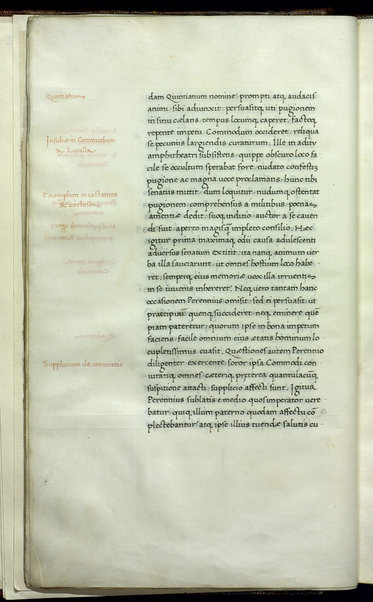 Quintianus
Insidiæ in Commodum
a Lucilla
Exemplum in iactantes
& verbosos
Supplicium de coniuratis
dam Quintianum nomine, prompti atq, audacis
animi sibi adiunxit, persuasitq, uti pugionem
in sinu cælans, tempus locumq, caperet, factoq,
repente impetu Commodum occideret, reliqua
se pecuniis largiendis curaturum. Ille in aditu
amphitheatri subsistens, quippe obscuro loco fa
cile se occultum sperabat fore, nudato confestim
pugione ac magna voce proclamans, hunc tibi
senatus mittit, dum loquitur, nudumq, ostentat
pugionem, comprehensus a militibus, poenas
amentiæ dedit, suoq, inditio auctor a se caven
di fuit, aperto magisq, impleto consilio. Hæc
igitur prima maximaq, odii causa adulescenti
adversus senatum extitit, ita nanq, animum ver
ba illa sauciarunt, ut omnes hostium loco habe
ret, semperq, eius memoriæ vox illa irruentis
in se iuvenis inhereret. Neq, vero tantam hanc
occasionem Perennius omisit, sed ei persuasit, ut
præcipuum quenq, succideret, neq, eminere quē
piam pateretur, quorum ipse in bona impetum
faciens, facile omnium eius ætatis hominum lo
cupletissimus evasit. Quæstiones autem Perennio
diligenter exercente, soror ipsa Commodi con
iuratiq, omnes, cæteriq, præterea quantulacūq,
suspitione attacti, supplicio affecti sunt. Igitur
Perennius sublatis e medio quos imperator vere
batur, quiq, illum paterno quodam affectu cō
plectebantur, atq, ipse illius tuendæ salutis cu